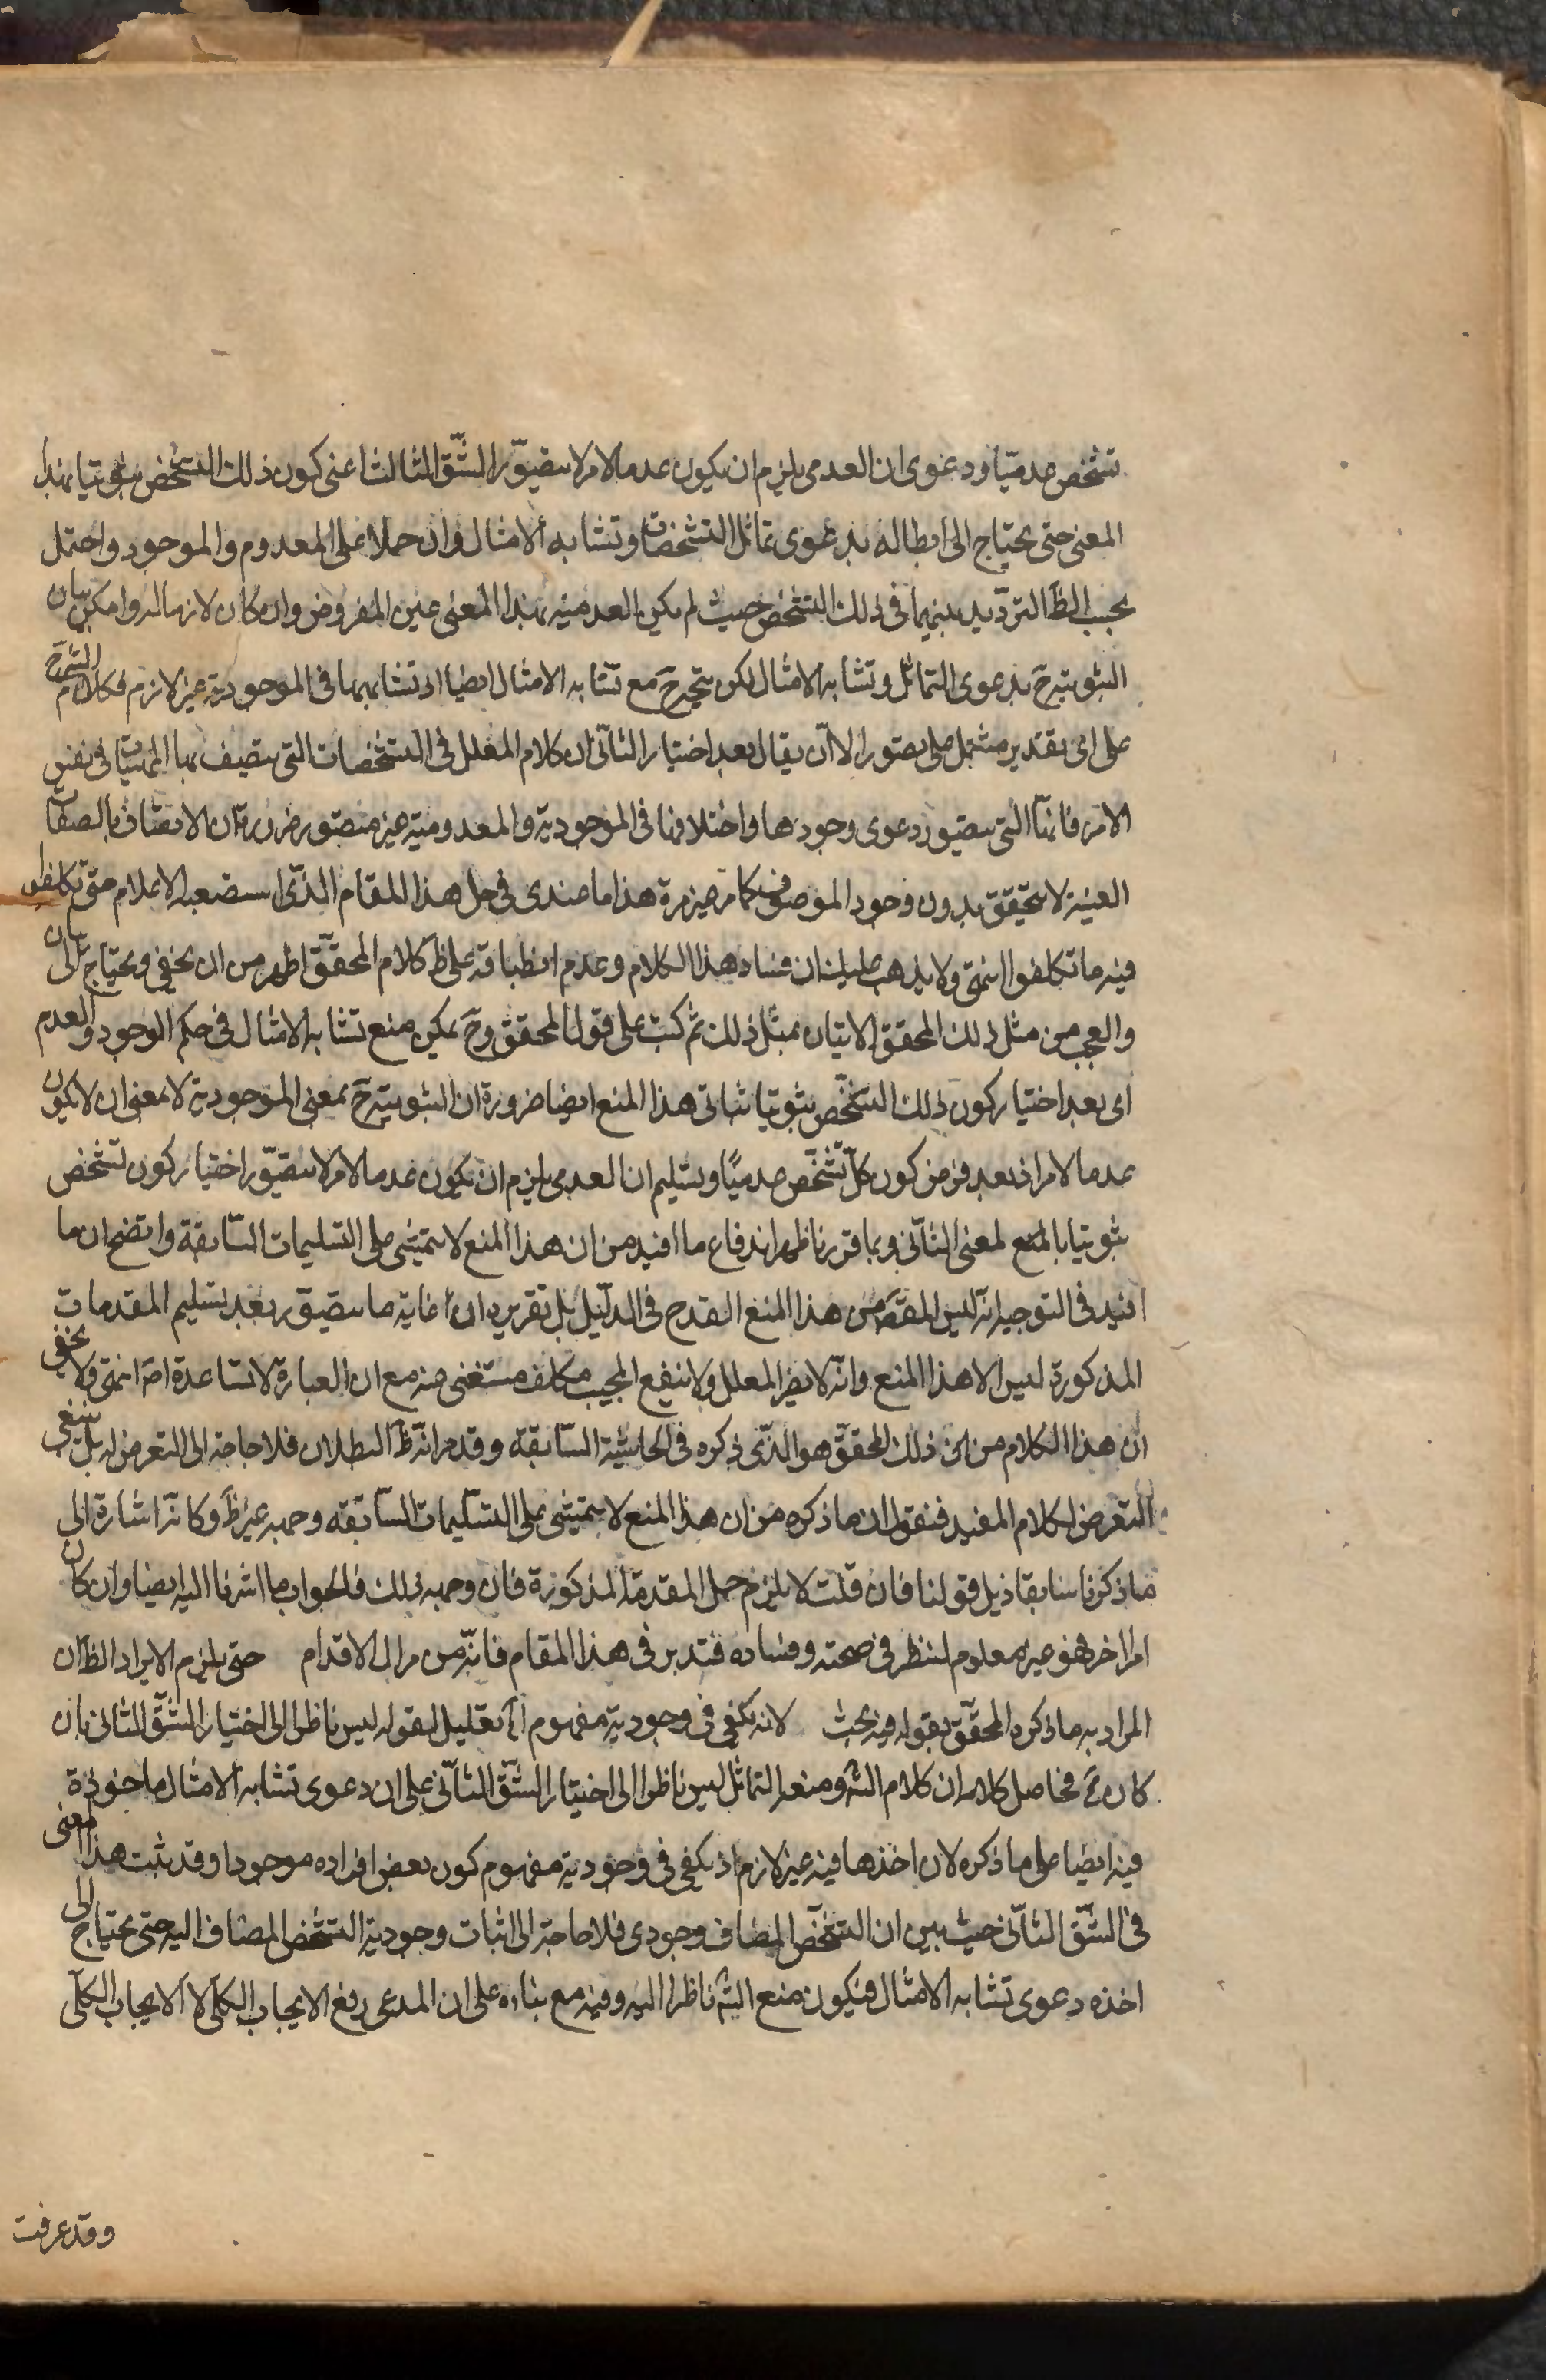 تشخص عدميا ودعوى ان العدمى يلزم ان يكون عدما لامر لا يتصور الشق الثالث اعنى كون ذلك التشخص ثبوتيا بهذا
المعنى حتى يحتاج الى ابطاله بدعوى تماثل التشخصات وتشابه الامثال وان حملا على المعدوم والموجود واحتمل
بحسب الظ الترديد بينهما فى ذلك التشخص حيث لم يكن العدمية بهذا المعنى عين المفروض وان كان لازما له وامكن بيان
الثبوتية ح بدعوى التماثل وتشابه الامثال لكن يتجه ح مع تشابه الامثال ايضا اذ تشابهها فى الموجودية غير لازم فكلام الش ح
على اى تقدير مشتمل على قصور الا ان يقال بعد اختيار الثانى ان كلام المعلل فى التشخصات التى يتصف بها الماهيات فى نفس
الامر فانها التى يتصور دعوى وجودها واختلافها فى الموجودية والمعدومية غير متصور ضرورة ان الاتصاف بالصفات
العينية لا يتحقق بدون وجود الموصوف كما مر غير مرة هذا ما عندى فى حل هذا المقام الذى استصعبه الاعلام حتى تكلفوا
فيه ما تكلفوا انتهى ولا يذهب عليك ان فساد هذا الكلام وعدم انطباقه على ظ كلام المحقق اظهر من ان يخفى ويحتاج الى بيان
والعجب من مثل ذلك المحقق الاتيان بمثل ذلك ثم كتب على قول المحقق وح يمكن منع تشابه الامثال فى حكم الوجود والعدم
اى بعد اختيار كون ذلك التشخص ثبوتيا يتأتى هذا المنع ايضا ضرورة ان الثبوتية ح بمعنى الموجودية لا بمعنى ان لا يكون
عدما لامر اذ بعد فرض كون كل تشخص عدميا وتسليم ان العدمى يلزم ان يكون عدما لامر لا يتصور اختيار كون تشخص
ثبوتيا بالمعنى الثانى وبما قررنا ظهر اندفاع ما افيد من ان هذا المنع لا يتمشى على التسليمات السابقة واتضح ان ما
افيد فى التوجيه انه ليس المقص من هذا المنع القدح فى الدليل بل تقريره ان غاية ما يتصور بعد تسليم المقدمات
المذكورة ليس الا هذا المنع وانه لا يضر المعلل ولا ينفع المجيب تكلف مستغنى عنه مع ان العبارة لا تساعده اص انتهى ولا يخفى
ان هذا الكلام من ذلك المحقق هو الذى ذكره فى الحاشية السابقة وقد مر انه ظ البطلان فلا حاجة الى التعرض له بل ينبغى
التعرض لكلام المفيد فنقول ان ما ذكره من ان هذا المنع لا يتمشى على التسليمات السابقه وجهه غير ظ وكانه اشارة الى
ما ذكرنا سابقا ذيل قولنا فان قلت لا يلزم حمل المقدمة المذكورة فان وجهه ذلك فالجواب ما اشرنا اليه ايضا وان كان
امرا اخر فهو غير معلوم لننظر فى صحته وفساده فتدبر فى هذا المقام فانه من مزال الاقدام حتى يلزم الايراد الظ ان
المراد به ما ذكره المحقق بقوله فيه بحث لانه يكفى فى وجودية مفهوم اه تعليل لقوله ليس ناظرا الى اختيار الشق الثانى بان
كان ثم فحاصل كلامه ان كلام الش ومنعه التماثل ليس ناظرا الى اختيار الشق الثانى على ان دعوى تشابه الامثال ماخوذة
فيه ايضا على ما ذكره لان اخذها فيه غير لازم اذ يكفى فى وجودية مفهوم كون بعض افراده موجودا وقد ثبت هذا المعنى
فى الشق الثانى حيث بين ان التشخص المضاف وجودى فلا حاجة الى اثبات وجودية التشخص المضاف اليه حتى يحتاج الى
اخذه دعوى تشابه الامثال فيكون منع الش ناظرا اليه وفيه مع بناءه على ان المدعى رفع الايجاب الكلى لا الايجاب الكلى
وقد عرفت